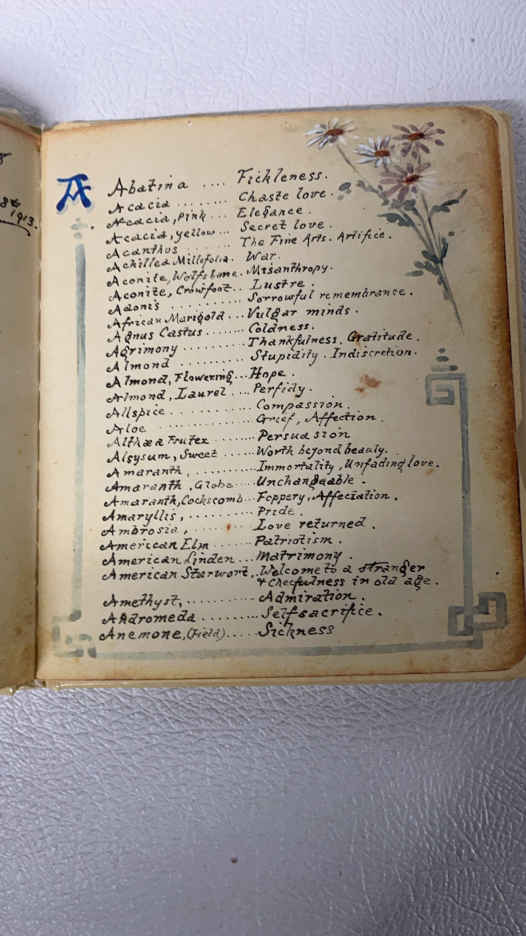 8th
1913.
A
Abatina .... Fickleness.
Acacia ..... Chaste love.
Acacia, pink ... Elegance.
Acacia, yellow... Secret love.
Acanthus ....... The Fine Arts. Artifice.
Achillea Millifolia. War.
Aconite, Wolfsbane. Misanthropy.
Aconite, Crowfoot.. Lustre.
Adonis ......... Sorrowful remembrance.
African Marigold ... Vulgar minds.
Agnus Castus ...... Coldness.
Agrimony ......... Thankfulness, Gratitude.
Almond .......... Stupidity. Indiscretion.
Almond, Flowering... Hope.
Almond, Laurel .... Perfidy.
Allspice ......... Compassion.
Aloe ........... Grief, Affection.
Althæa Frutex ....... Persuasion
Alysum, Sweet ...... Worth beyond beauty.
Amaranth, ......... Immortality, Unfading love.
Amaranth, Globe.... Unchangeable.
Amaranth, Cockscomb... Foppery, Affectation.
Amaryllis, ......... Pride.
Ambrosia, ......... Love returned.
American Elm ...... Patriotism.
American Linden ... Matrimony.
American Starwort. Welcome to a stranger
& Cheefulness in old age.
Amethyst, ......... Admiration.
Andromeda ........ Self sacrifice.
Anemone, (Field) ..... Sickness